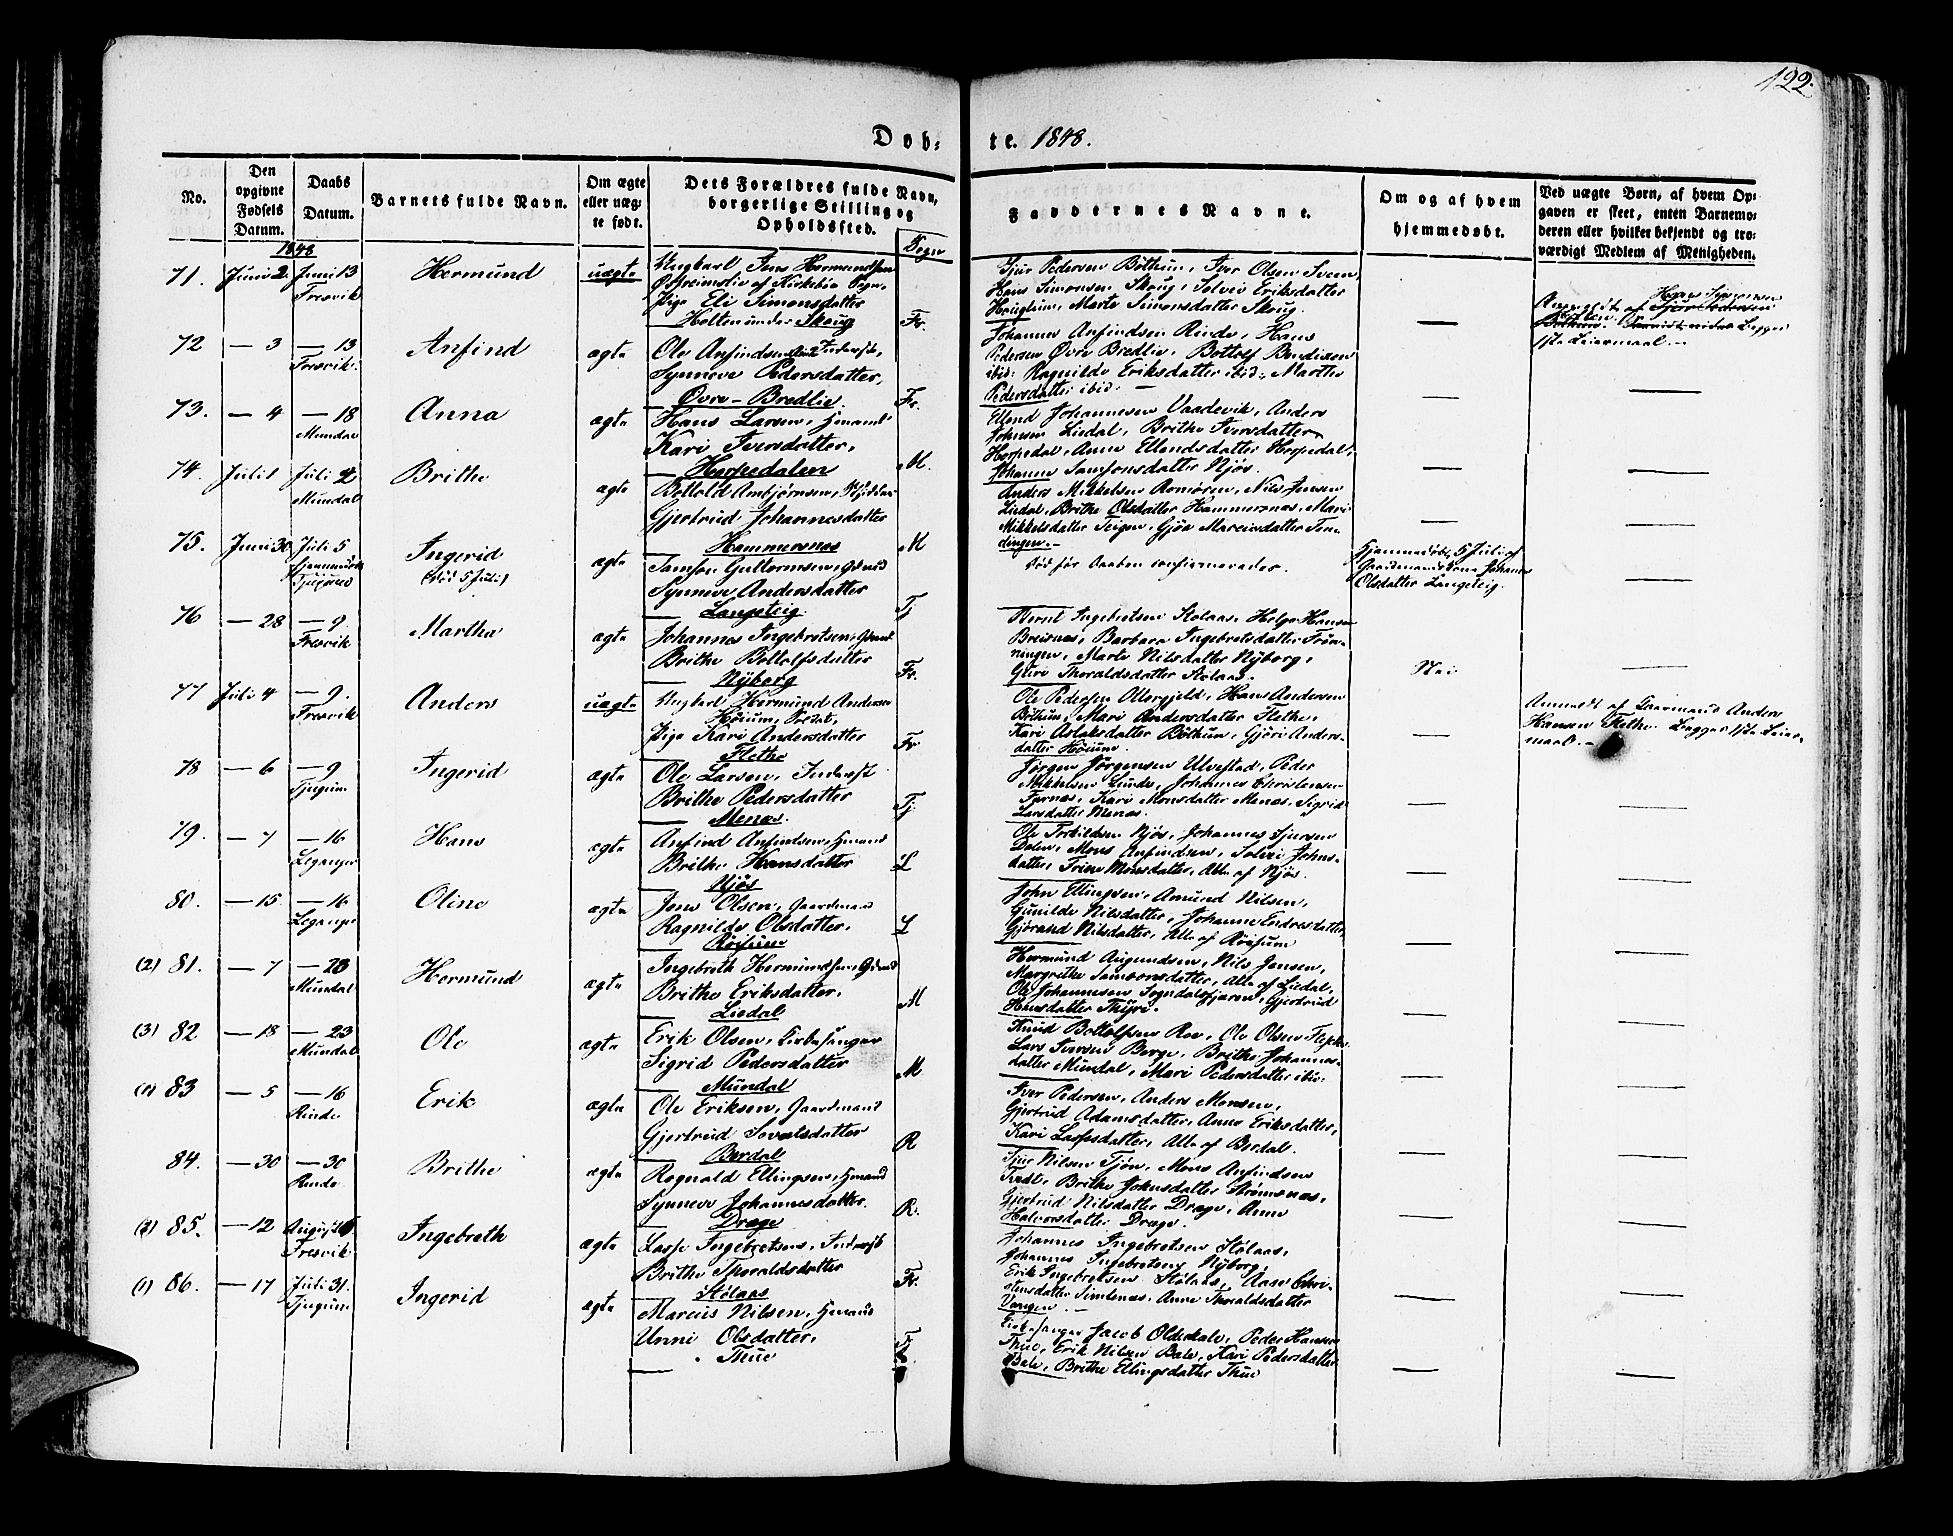 122.
Døb-
te. 1848.
No.
Den opgivne Fødsels Datum.
Daabs Datum.
Barnets fulde Navn.
Om ægte eller uægte født.
Dets Forældres fulde Navn, borgerlige Stilling og Opholdsfted.
Sogn
Faddernes Navne.
Om og af hvem hjemmedøbt.
Ved uægte Børn, af hvem Opgaven er skeet, enten Barnemoderen eller hvilket bekjendt og troværdigt Medlem af Menigheden.
1848
71. Juni 2 Juni 13 Fresvik Hermund uægte
Ungkarl Jens Hermundsen
af Kirkebø Sogn,
Pige Eli Simonsdatter
Holten under Skoug Fr.
Sjur Pedersen Bøthun, Iver Olsen
Hans Simonsen Skoug, Solvei Eriksdatter
Houglum, Marte Simonsdatter Skoug.
—
72 — 3 — 13 Fresvik. Anfind ægte
Ole Anfindsen Inderst,
Synneve Pedersdatter,
Øvre-Bredlie. Fr.
Johannes Anfindsen Rinde, Hans
Pedersen Øvre Bredlie, Bottolf Bendixen
ibid: Ragnilde Eriksdatter ibid:, Marthe
Pedersdatter ibid: —
—
73. — 4 — 18 Mundal Anna ægte
Hans Larsen, Huusmand
Kari Iversdatter,
Herpedalen M.
Ellend Johannesen Vaadevik, Anders
Johnsen Liedal, Brithe Iversdatter
Herpedal, Anne Ellendsdatter Herpedal,
Johanne Samsonsdatter Njøs.
—
74. Juli 1 Juli 2 Mundal Brithe ægte
Bottold Ambjørnsen,
Gjertrud Johannesdatter
Hammersnes M
Anders Mikkelsen Romøren, Nils Jensen
Liedal, Brithe Olsdatter Hammersnes, Mari
Mikkelsdatter Teigen, Gjøa Marcusdatter Ten-
dingen.
—
75. Juni 30 Juli 5 Hjemmedøbt Tjugum Ingerid (død 5 Juli) ægte
Samson Guttormsen,
Synneve Andersdatter
Langeteig Tj
Død før Daaben confirmeredes.
Hjemmedøbt 5 Juli af
Gaardmandskone Johanne
Olsdatter Langeteig.
76 — 28 — 9. Fresvik Martha ægte
Johannes Ingebretsen,
Brithe Bottolfsdatter
Nyborg Fr.
Ingebretsen Stølaas, Helge Hansen
Breisnes, Barbara Ingebretsdatter Frøn-
ningen, Marte Nilsdatter Nyborg,
Guri Thoraldsdatter Stølaas.
Nei
77 Juli 4 — 9. Fresvik Anders uægte
Ungkarl Hermund Andersen
Høium,
Pige Kari Andersdatter
Flethe Fr
Ole Pedersen Ottergjeld, Hans Andersen
Bøthun, Mari Andersdatter Flethe,
Kari Aslaksdatter Bøthun, Gjøri Anders-
datter Høium.
—
Anmeldt af Gaardmand Anders
Hansen Flethe. Begges 1ste Leier-
maal.
78 — 6 — 9 Tjugum Ingerid ægte
Ole Larsen, Inderst
Brithe Pedersdatter
Menes. Tj
Jørgen Jørgensen Ulvestad, Peder
Mikkelsen Linde, Johannes Christensen
Farnes, Kari Monsdatter Menes, Sigrid
Larsdatter Menes.
—
79. — 7 — 16 Leganger Hans ægte
Anfind Anfindsen, Huusmand
Brithe Hansdatter
Njøs L
Ole Torkildsen Njøs, Johannes Sjursen
Dalen, Mons Anfindsen, Solvei Johns-
datter, Trine Monsdatter, Alle af Njøs.
—
80. — 15. — 16 Leganger Oline ægte
Jens Olsen, Gaardmand
Ragnilde Olsdatter,
Røisum L
John Ellingsen, Amund Nilsen,
Gunilde Nilsdatter, Johanne Endresdatter
Gjørand Nilsdatter, Alle af Røisum
—
(2) 81. — 7 — 23 Mundal Hermund ægte
Ingebreth Hermundsen,
Brithe Eriksdatter,
Liedal M
Hermund Augundsen, Nils Jensen,
Margrethe Samsonsdatter, Alle af Liedal,
Ole Johannesen Sogndalsfjøren, Gjertrud
Hansdatter Thyri.
—
(3) 82 — 18 — 23 Mundal Ole ægte
Erik Olsen, Kirkesanger
Sigrid Pedersdatter
Mundal M
Knud Bottolfsen Roe, Ole Olsen
Lars Iversen Berge, Brithe Johannes-
datter Mundal, Mari Pedersdatter ibid:
—
(1) 83 — 5 — 16 Rinde Erik ægte
Ole Eriksen, Gaardmand
Gjertrud
Berdal R
Iver Pedersen, Anders Monsen,
Gjertrud Adamsdatter, Anne Eriksdatter,
Kari Lassesdatter, Alle af Berdal.
—
84. — 30 — 30 Rinde Brithe ægte
Rognald Ellingsen, Huusmand
Synneve Johannesdatter.
Drage R.
Sjur Nilsen Tjøn, Mons Anfindsen
Tvedt, Brithe Johnsdatter Strømsnes,
Gjertrud Nilsdatter Drage, Anne
Halvorsdatter Drage.
—
(2) 85. — 12 August Fresvik Ingebreth ægte
Lasse Ingebretsen, Inderst
Brithe Thoraldsdatter
Stølaas Fr.
Johannes Ingebretsen Stølaas,
Johannes Ingebretsen Nyborg,
Erik Ingebretsen Stølaas, Aase Chri-
stensdatter Simlenes, Anne Thoraldsdatter
Vangen.
—
(1) 86. — 17 Juli 31. Tjugum Ingerid ægte
Marcus Nilsen, Huusmand
Unni Olsdatter,
Thue Tj
Kirkesanger Jacob Olderdale, Peder Hansen
Thue, Erik Nilsen Bale, Kari Pedersdatter
Bale, Brithe Ellingsdatter Thue
—